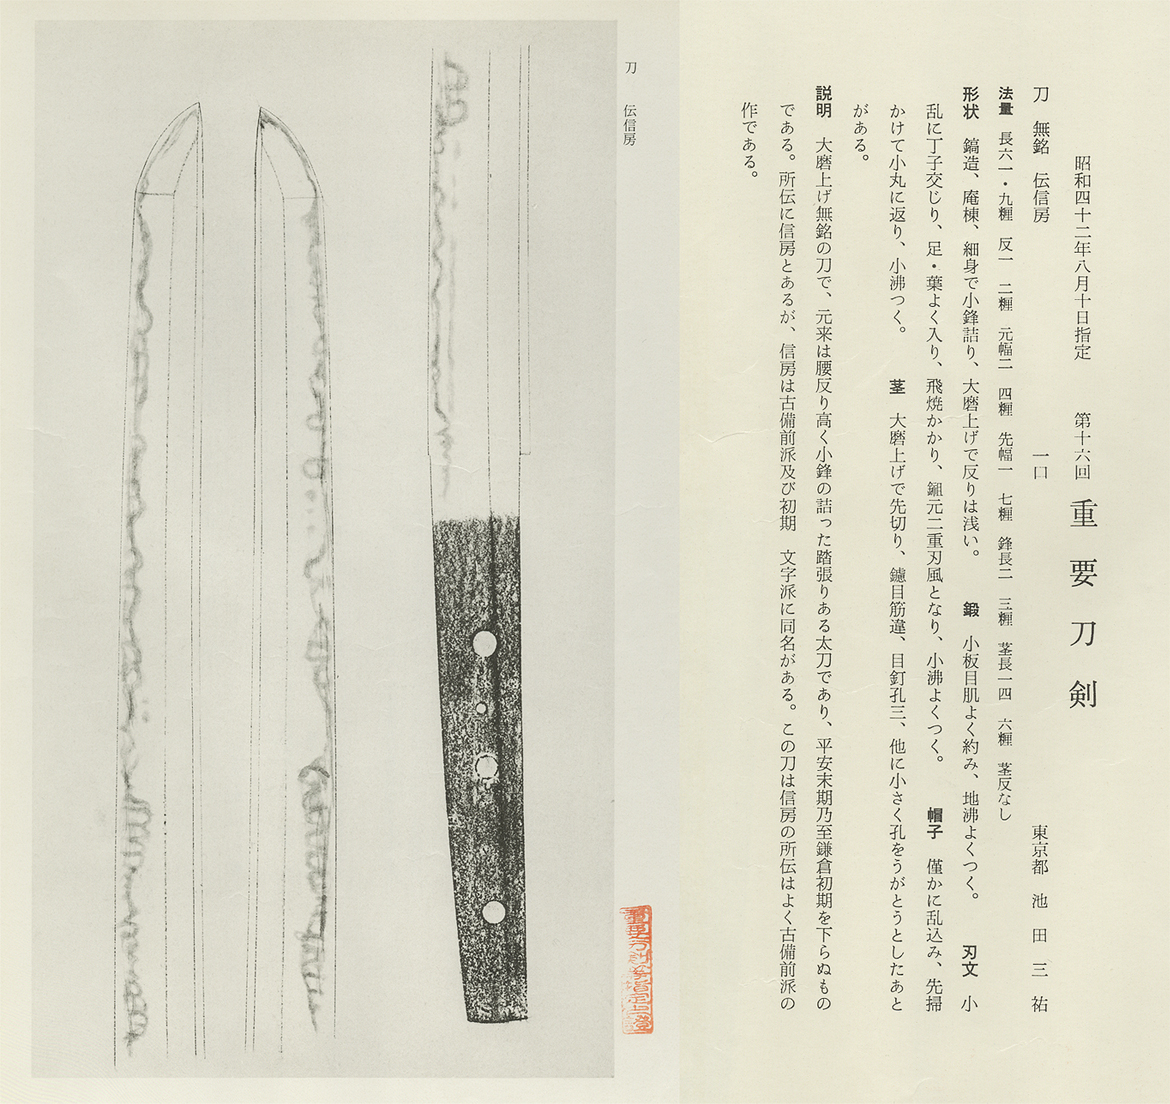 昭和四十二年八月十日指定 第十六回 重要刀剣
刀 無銘 伝信房 一口 東京都 池田三祐
法量 長六一・九糎 反一 二糎 元幅二 四糎 先幅一 七糎 鋒長二 三糎 茎長一四 六糎 茎反なし
形状 鎬造、庵棟、細身で小鋒詰り、大磨上げで反りは浅い。 鍛 小板目肌よく約み、地沸よくつく。 刃文 小
乱に丁子交じり、足・葉よく入り、飛焼かかり、鎺元二重刃風となり、小沸よくつく。 帽子 僅かに乱込み、先掃
かけて小丸に返り、小沸つく。 茎 大磨上げで先切り、鑢目筋違、目釘孔三、他に小さく孔をうがとうとしたあと
がある。
説明 大磨上げ無銘の刀で、元来は腰反り高く小鋒の詰った踏張りある太刀であり、平安末期乃至鎌倉初期を下らぬもの
である。所伝に信房とあるが、信房は古備前派及び初期 文字派に同名がある。この刀は信房の所伝はよく古備前派の
作である。
刀 伝信房